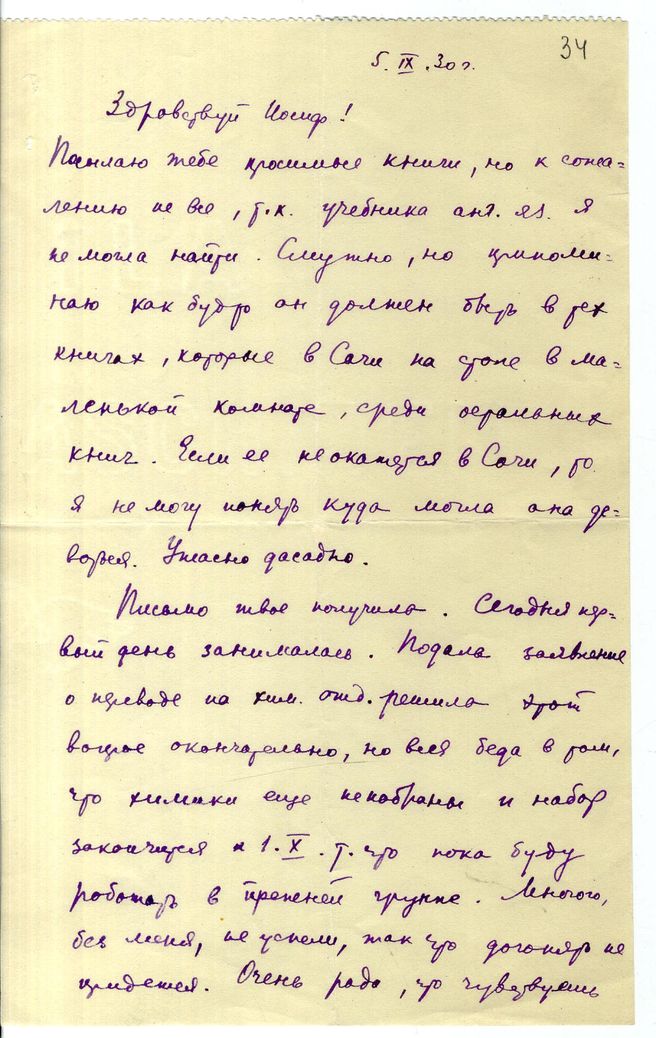 34
5.IX.30 г.
Здравствуй Иосиф!
Посылаю тебе просимые книги, но к сожа-
лению не все, т.к. учебника анг. яз. я
не могла найти. Смутно, но припоми-
наю как будто он должен быть в тех
книгах, которые в Сочи на столе в ма-
ленькой комнате, среди остальных
книг. Если ее не окажется в Сочи, то
я не могу понять куда могла она де-
ваться. Ужасно досадно.
Письмо твое получила. Сегодня пер-
вый день занималась. Подала заявление
о переводе на хим. отд. решила этот
вопрос окончательно, но вся беда в том,
что химики еще не набраны и набор
закончится к 1.X. т. что пока буду
работать в прежней группе. Многого,
без меня, не успели, так что догонять не
придется. Очень рада, что чувствуешь